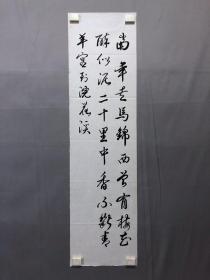 當年走馬錦西曾為梅花
醉似泥二十里中香不斷青
羊宮到浣花溪